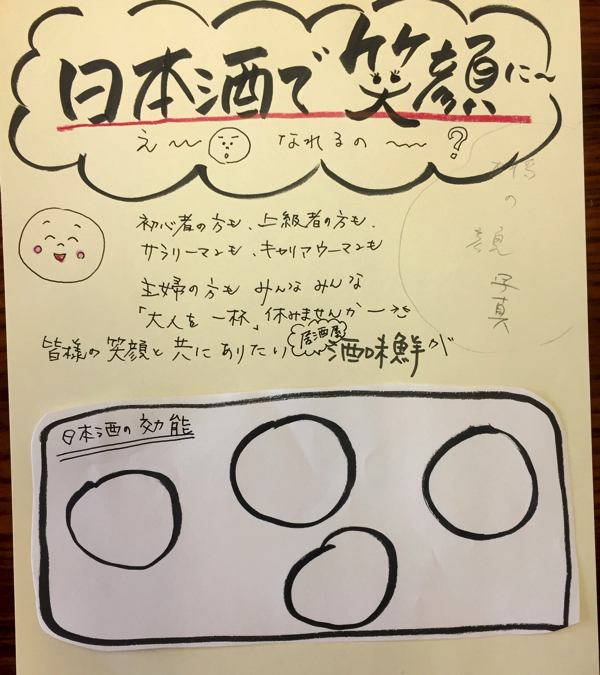 日本酒で笑顔に〜
え〜 なれるの〜?
の顔写真
初心者の方も、上級者の方も、
サラリーマンも、キャリアウーマンも
主婦の方も みんなみんな
「大人を一杯」休みませんか
皆様の笑顔と共にありたい 居酒屋 酒味鮮が
日本酒の効能